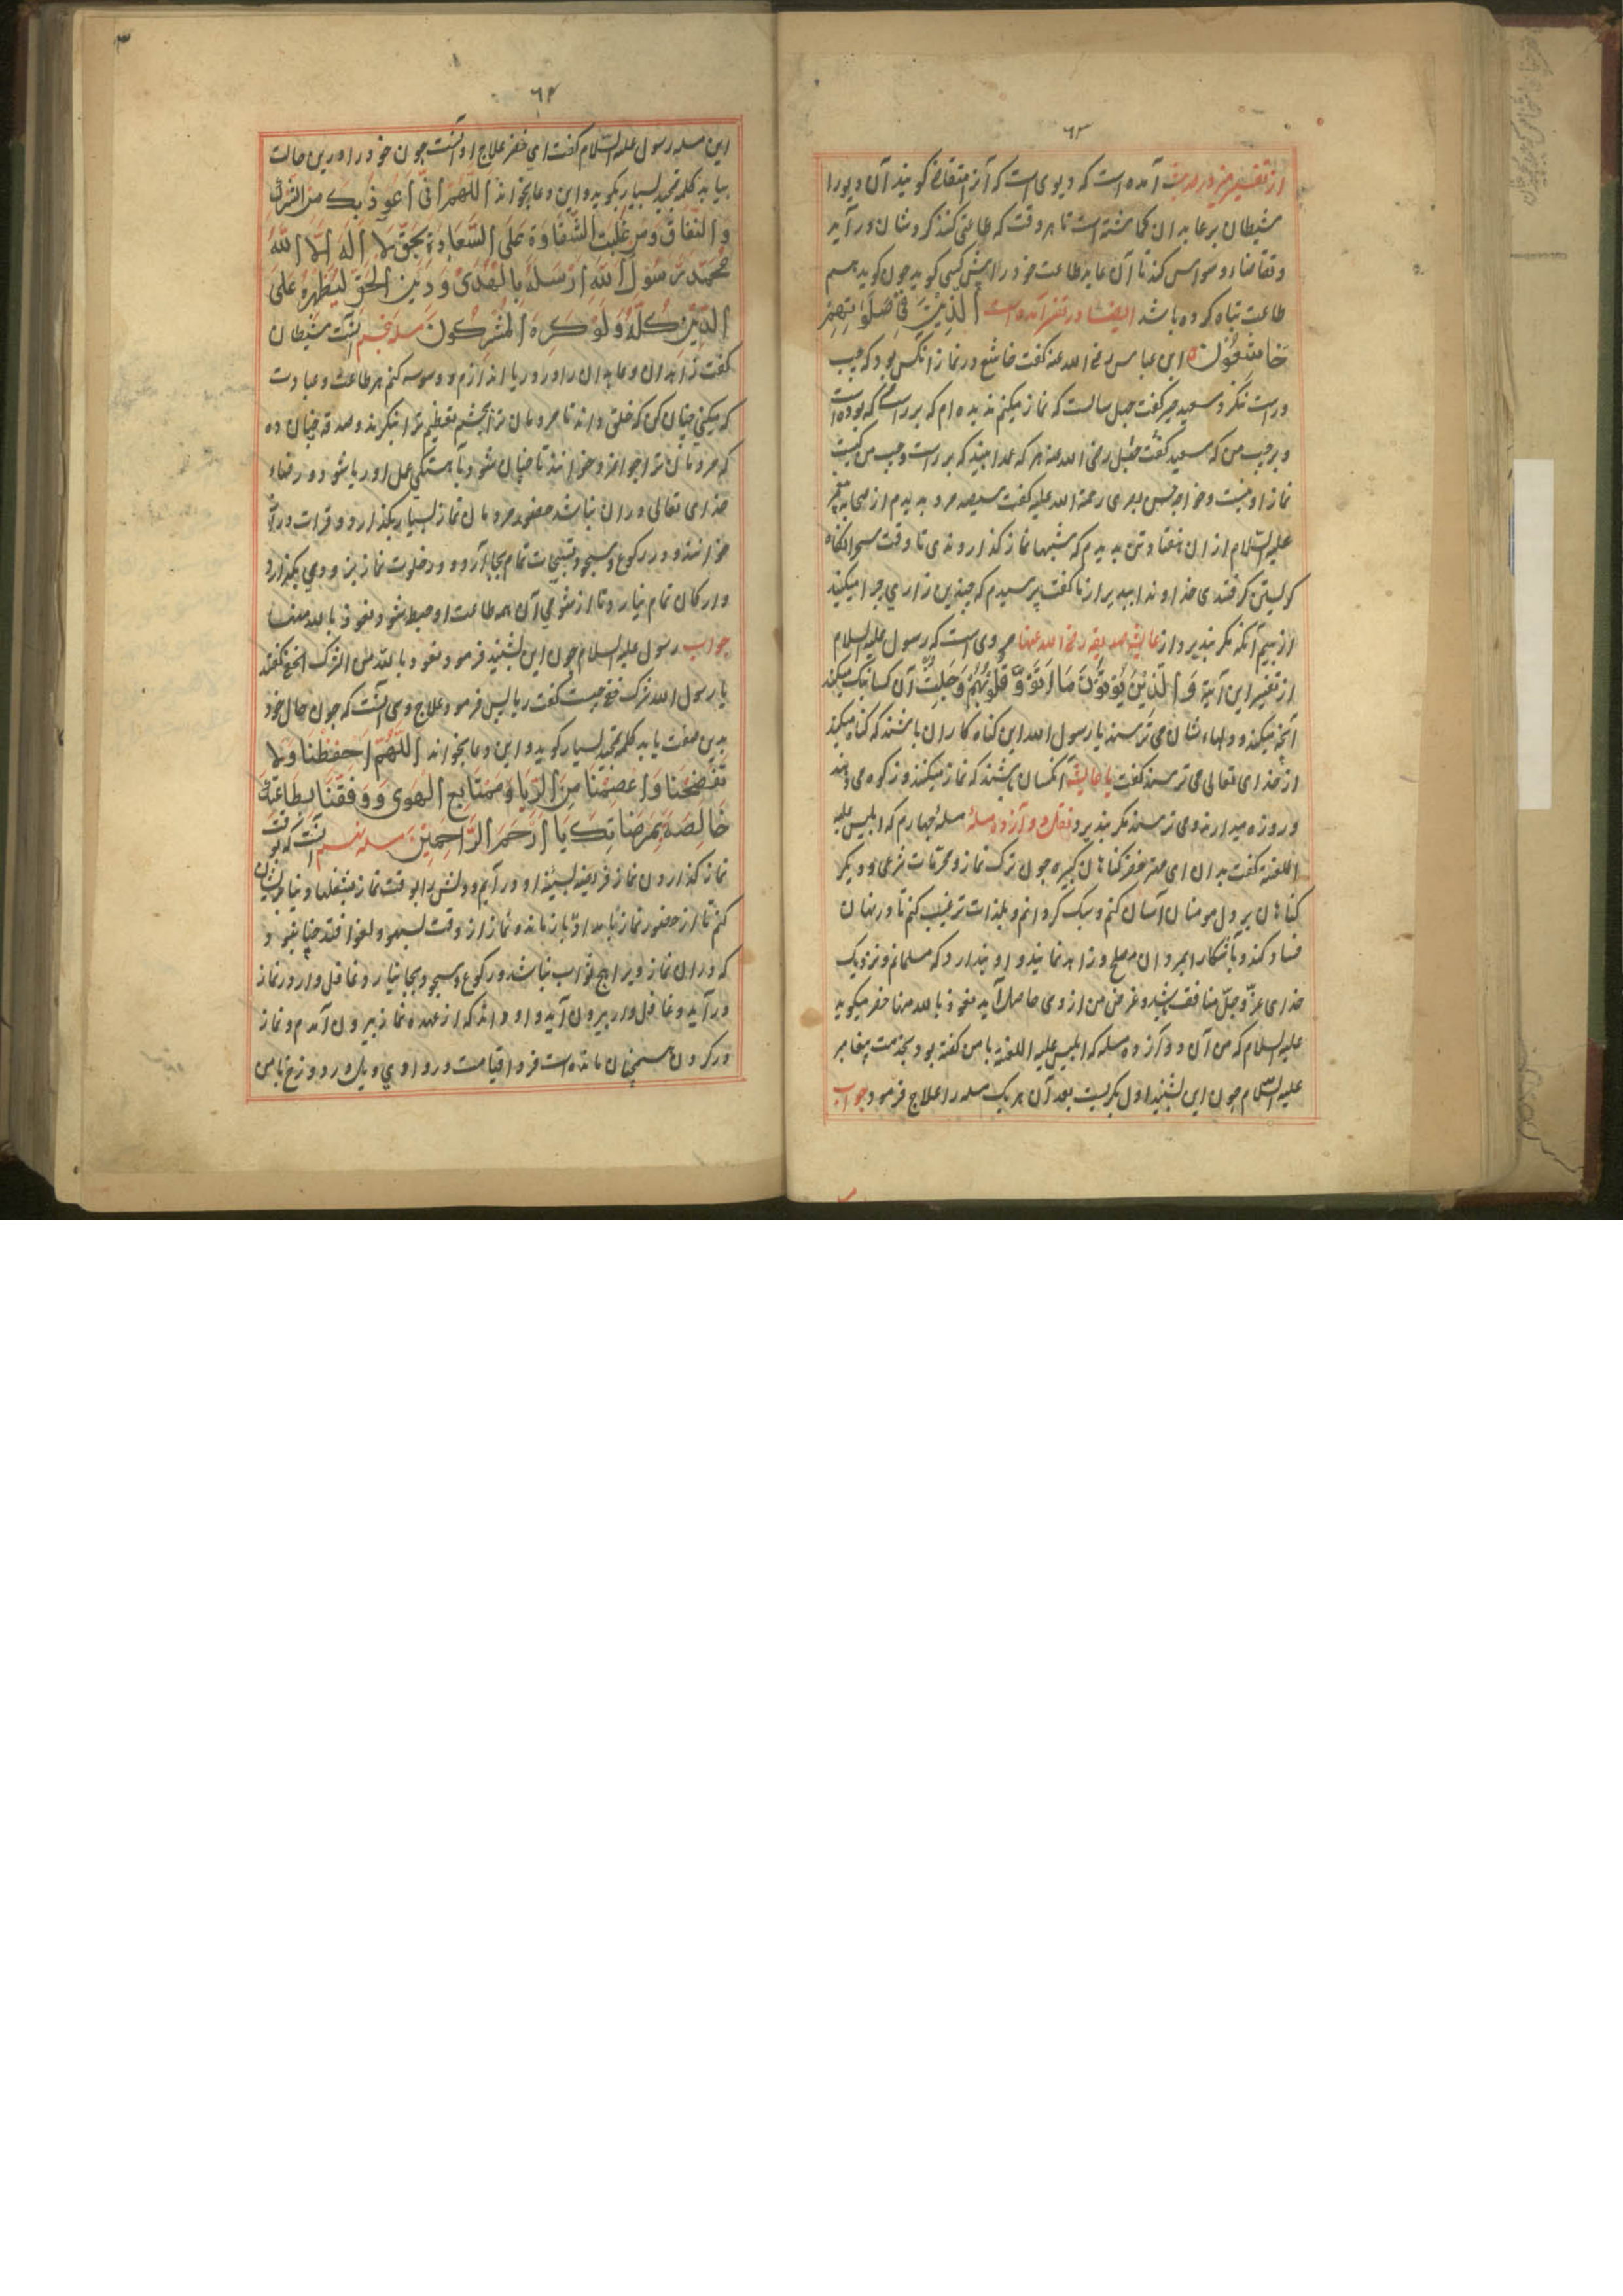 ٦٣
از تفسیر در حدیث آمده است که دیوی است که آنرا متقاضی کویند آن دیو را
شیطان بر عابدان کماشته است تا هر وقت که طاعتی کنند کرد شان در آید
و تقاضا و وسواس کند تا آن عابد طاعت خود را پیش کسی کوید چون کوید همه
طاعت تباه کرده باشد ایضا در تفسیر آمده است الَّذِیْنَ فِیْ صَلَوٰتِهِمْ
خَاشِعُوْنَ ابن عباس رضی الله عنه کفت خاشع در نماز آنکس بود که چپ
و راست ننکرد سعید جبیر کفت چهل سالست که نماز میکنم ندیده ام که بر راست که بوده است
و بر چپ من که سعید کفت رضی الله عنه هر که عمدا بیند که بر راست و چپ من کیست
نماز او نیست و خواجه حسن بصری رحمة الله علیه کفت سیصد مرد بدیدم از صحابه پیغمبر
علیه السلام از ان هفتاد تن بدیدم که شبها نماز کذاردندی تا وقت سحر آنکاه
کریستن کرفتندی خداوندا بپذیر از ما کفت پرسیدم که چندین زاری چرا میکنید
از بیم آنکه مکر نپذیرد از عایشه صدیقه رضی الله عنها مروی است که رسول علیه السلام
از تفسیر این آیة وَالَّذِیْنَ یُؤْتُوْنَ مَا اٰتَوْا وَّقُلُوْبُهُمْ وَجِلَةٌ آن کسانیکه میکنند
آنچه میکنند و دلهاء شان می ترسند یا رسول الله این کناه کاران باشند که کناه میکنند
از خدای تعالی می ترسند کفت یا عایشه آنکسان باشند که نماز میکنند و زکوه می دهند
و روزه میدارند و می ترسند مکر نپذیرد مسله چهارم که ابلیس علیه
اللعنة کفت بدان ای مهتر خضر کناهان کبیره چون ترک نماز و محرمات شرعی و دیکر
کناهان بر دل مومنان آسان کنم و سبک کردانم و بلذات ترغیب کنم تا در نهان
فساد کند و بآشکارا بمردان مصلح و زاهد نماید و او پندارد که مسلمانم و نزدیک
خدای عزّ و جلّ منافق باشد و غرض من از وی حاصل آید نعوذ بالله منها خضر میکوید
علیه السلام که من آن دوازده مسله که ابلیس علیه اللعنة با من کفته بود بخدمت پیغامبر
علیه السلام چون این بشنید اول بکریست بعد آن هر یک مسله را علاج فرمود جواب
٦٤
این مسله رسول علیه السلام کفت ای خضر علاج او آنست چون خود را درین حالت
بیابد کلمه تمجید بسیار بکوید و این دعا بخواند اَللّٰهُمَّ اِنِّیْ اَعُوْذُ بِکَ مِنَ الشِّرْکِ
وَالنِّفَاقِ وَمِنْ غَلَبَتِ الشَّقَاوَةِ عَلَی السَّعَادَةِ بِحَقِّ لَا اِلٰهَ اِلَّا اللّٰهُ
مُحَمَّدٌ رَّسُوْلُ اللّٰهِ اَرْسَلَهُ بِالْهُدٰی وَدِیْنِ الْحَقِّ لِیُظْهِرَهُ عَلَی
الدِّیْنِ کُلِّهِ وَلَوْ کَرِهَ الْمُشْرِکُوْنَ مسله پنجم آنست شیطان
کفت زاهدان و عابدان را در ریا اندازم و وسوسه کنم هر طاعت و عبادت
که میکنی چنان کن که خلق داند تا مردمان ترا بچشم تعظیم ترا بنکرند و صدقه چنان ده
که مردمان ترا جوانمرد خوانند تا چنان شود بآهستکی عمل او ریا شود و رضاء
خدای تعالی در ان نباشد بحضور مردمان نماز بسیار بکذارد و قرات دراز
خواند و در رکوع و سجود و تسبیحات تمام بجا آرد و در خلوت نماز بزودی بکذارد
و ارکان تمام نیارد تا از شومی آن همه طاعت او حبط شود نعوذ بالله منها
جواب رسول علیه السلام چون این بشنید فرمود نعوذ بالله من الشرک الخفی کفتند
یا رسول الله شرک خفی چیست کفت ریا پس فرمود علاج وی آنست که چون حال خود
بدین صفت یابد کلمه تمجید بسیار کوید و این دعا بخواند اَللّٰهُمَّ احْفَظْنَا وَلَا
تَفْضَحْنَا وَاعْصِمْنَا مِنَ الرِّیَا وَمُتَابِعِ الْهَوٰی وَوَفِّقْنَا بِطَاعَتِکَ
خَالِصَةً بِمَرْضَاتِکَ یَا اَرْحَمَ الرَّاحِمِیْنَ مسله ششم آنست که بوقت
نماز کذاردن نماز فریضه بسینه او در آیم و دلش را بوقت نماز بشغلها دنیا پریشان
کنم تا از حضور نماز باز ماند و نماز از وقت بسهو و لغو افتد چنانچه
که در ان نماز ویرا هیچ ثواب نباشد و رکوع و سجود بجا نیارد و غافل وار در نماز
در آید و غافل وار بیرون آید و او داند که از عهده نماز بیرون آمدم و نماز
در کردن همچنان مانده است فردا قیامت در وادی ویل در دوزخ با من